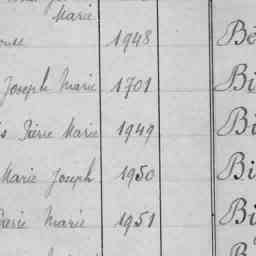 Marie
1948 Bé
Joseph Marie 1701 Bi
Pierre Marie 1949 Bi
Marie Joseph 1950 Bi
Marie 1951 Bi